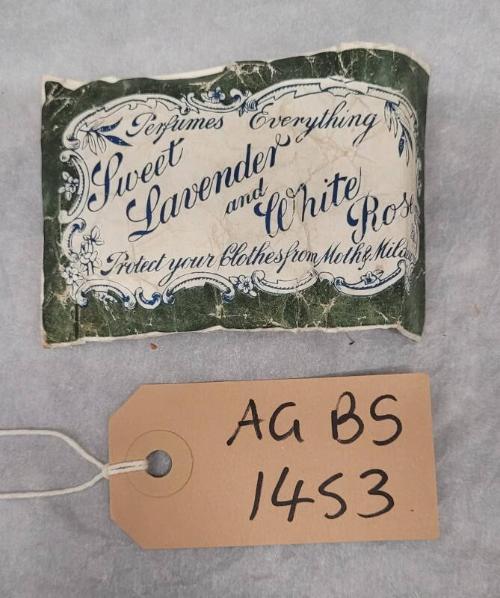 Perfumes Everything
Sweet
Lavender
and
White
Rose
Protect your Clothes from Moth & Mildew
AG BS
1453